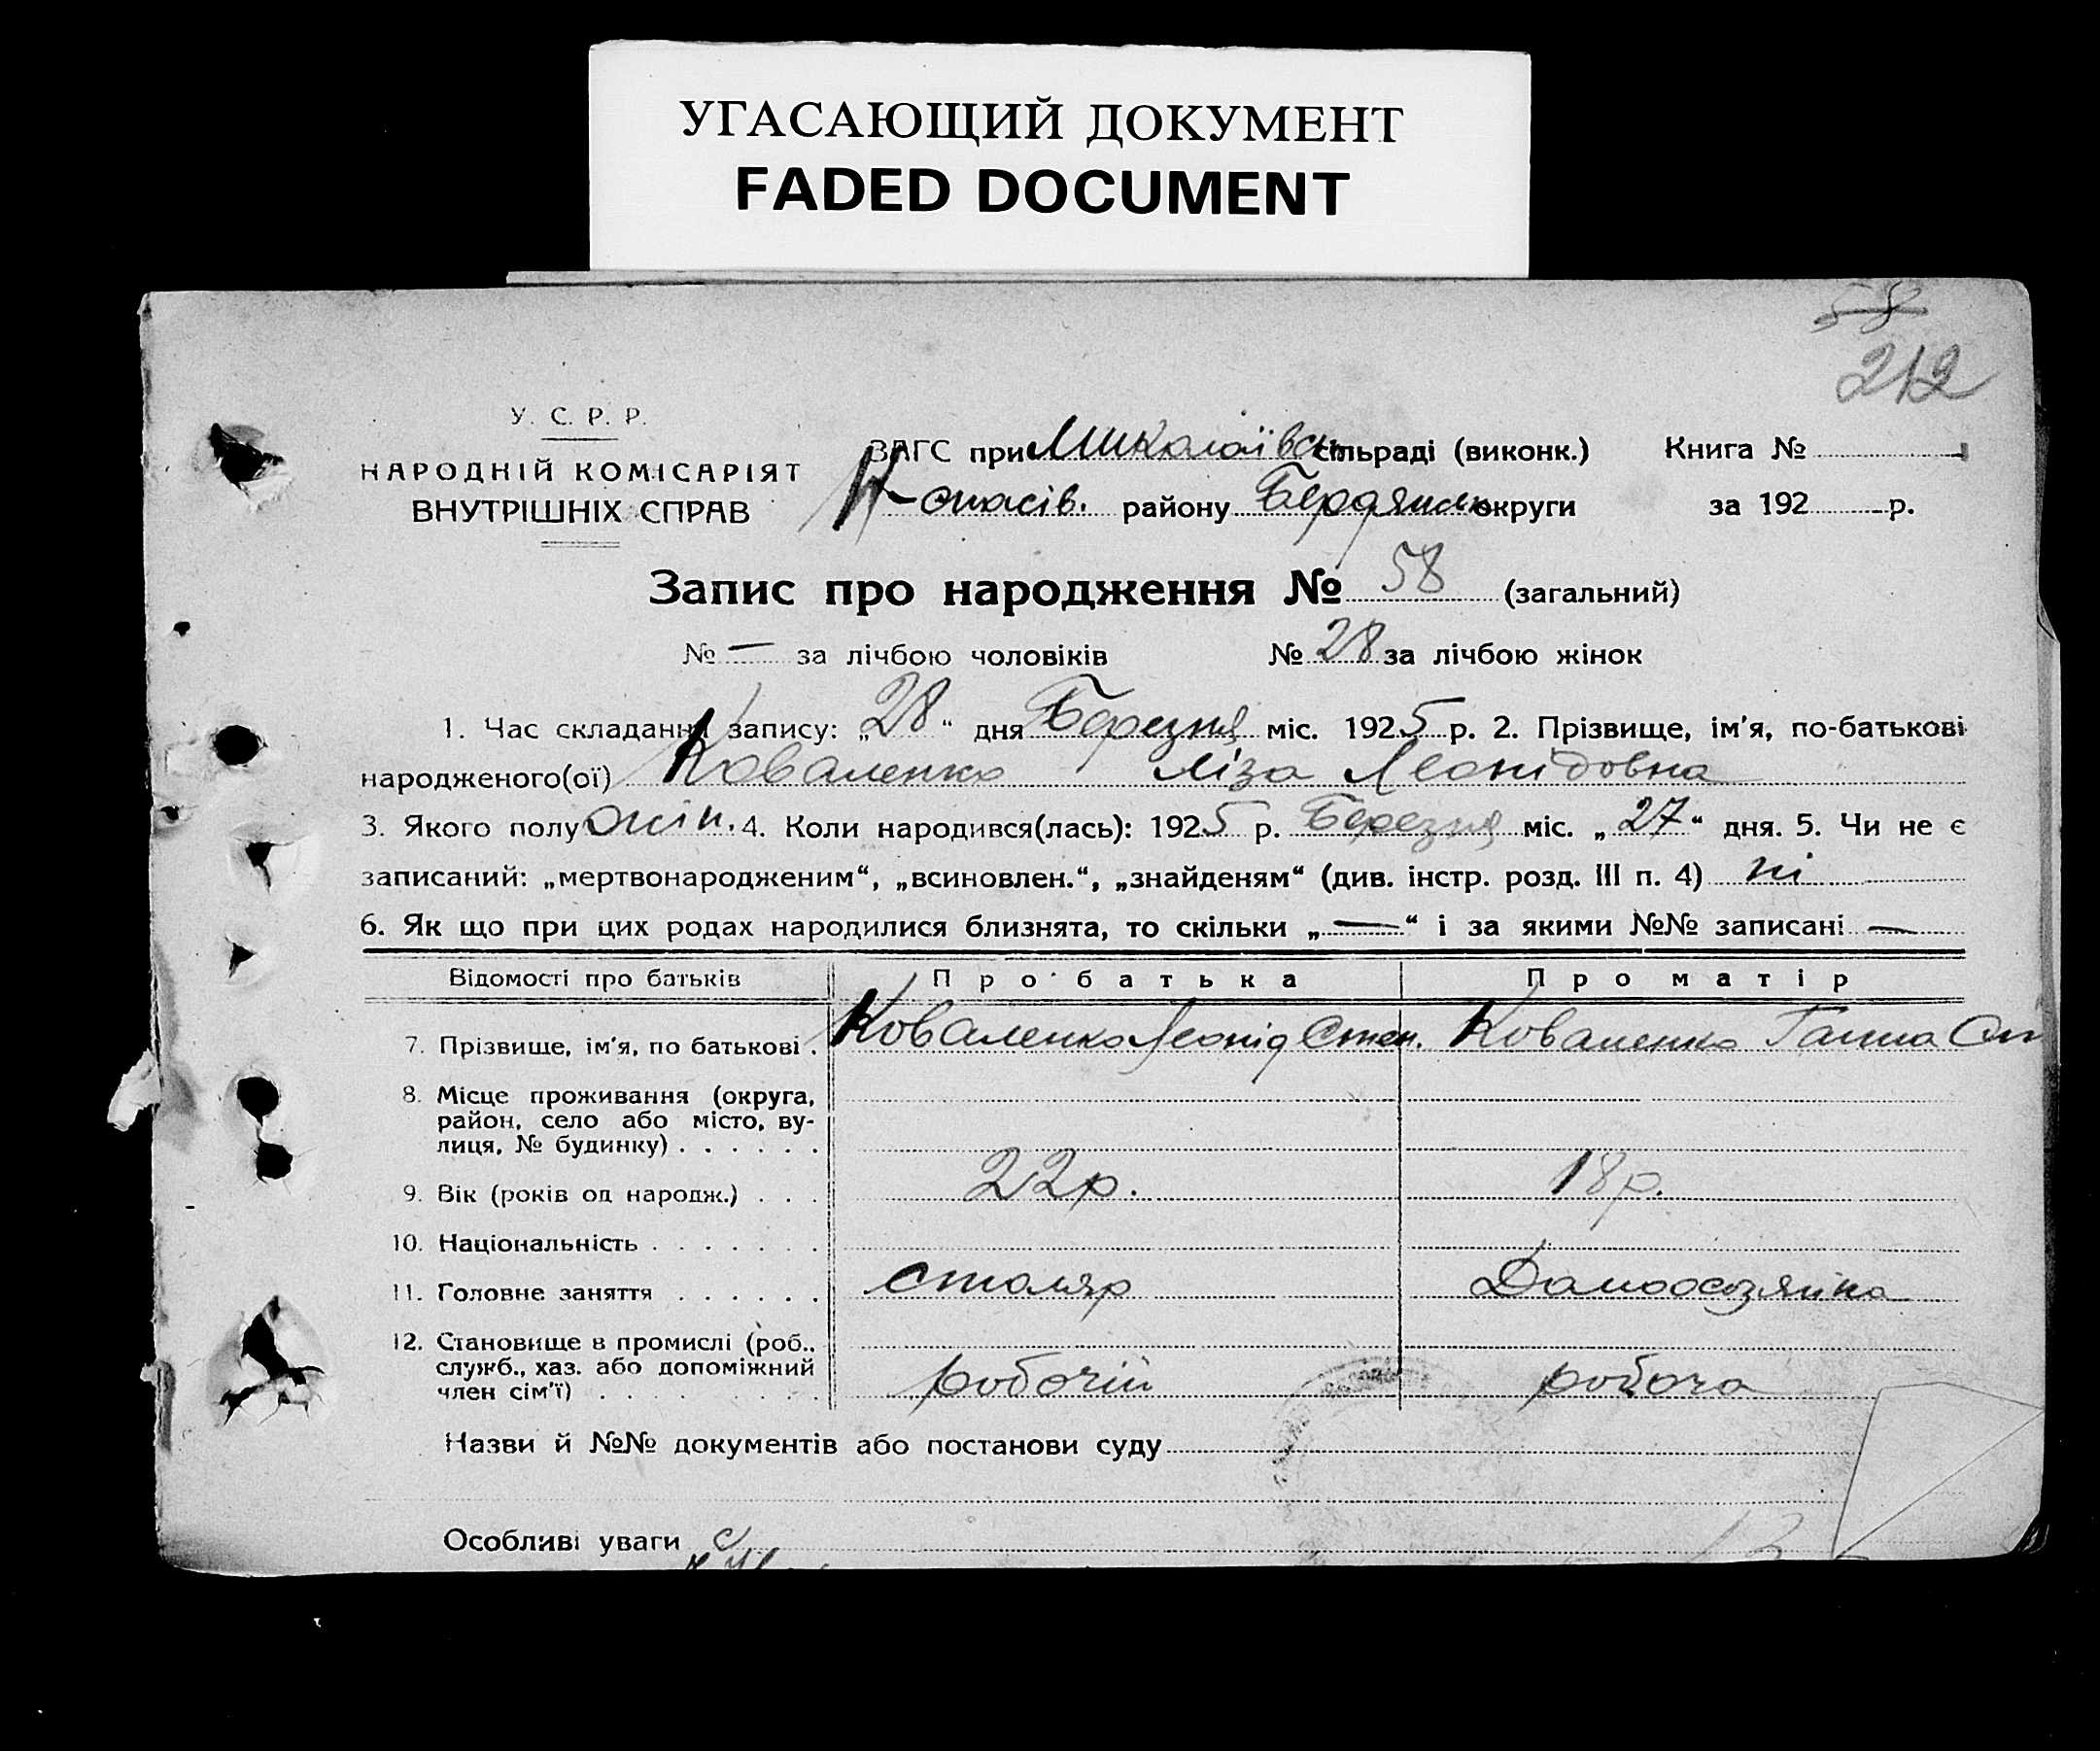 УГАСАЮЩИЙ ДОКУМЕНТ
FADED DOCUMENT
58
212
У. С. Р. Р.
НАРОДНІЙ КОМІСАРІЯТ
ВНУТРІШНІХ СПРАВ
ЗАГС при Миколаївск сільраді (виконк.) Книга №
Н-спасів. району Бердянськ округи за 192 р.
Запис про народження № 58 (загальний)
№ — за лічбою чоловіків № 28 за лічбою жінок
1. Час складання запису: „28“ дня Березня міс. 1925 р. 2. Прізвище, ім'я, по-батькові
народженого(ої) Коваленко Ліза Леонідовна
3. Якого полу жін. 4. Коли народився(лась): 1925 р. Березня міс. „27“ дня. 5. Чи не є
записаний: „мертвонародженим“, „всиновлен.“, „знайденям“ (див. інстр. розд. III п. 4) ні
6. Як що при цих родах народилися близнята, то скільки „—“ і за якими №№ записані —
Відомості про батьків Про батька Про матір
7. Прізвище, ім'я, по батькові . Коваленко Леонід Степ. Коваленко Ганна
8. Місце проживання (округа,
район, село або місто, ву-
лиця, № будинку) . . . . . .
9. Вік (років од народж.) . . . 22р. 18р.
10. Національність . . . . . . .
11. Головне заняття . . . . . . столяр Домоосозяйка
12. Становище в промислі (роб.,
служб., хаз. або допоміжний
член сім'ї) . . . . . . . робочій робоча
Назви й №№ документів або постанови суду
Особливі уваги